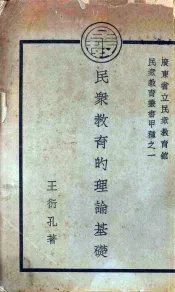 廣東省立民衆教育館
民衆教育叢書甲種之一
民衆教育的理論基礎
王衍孔著